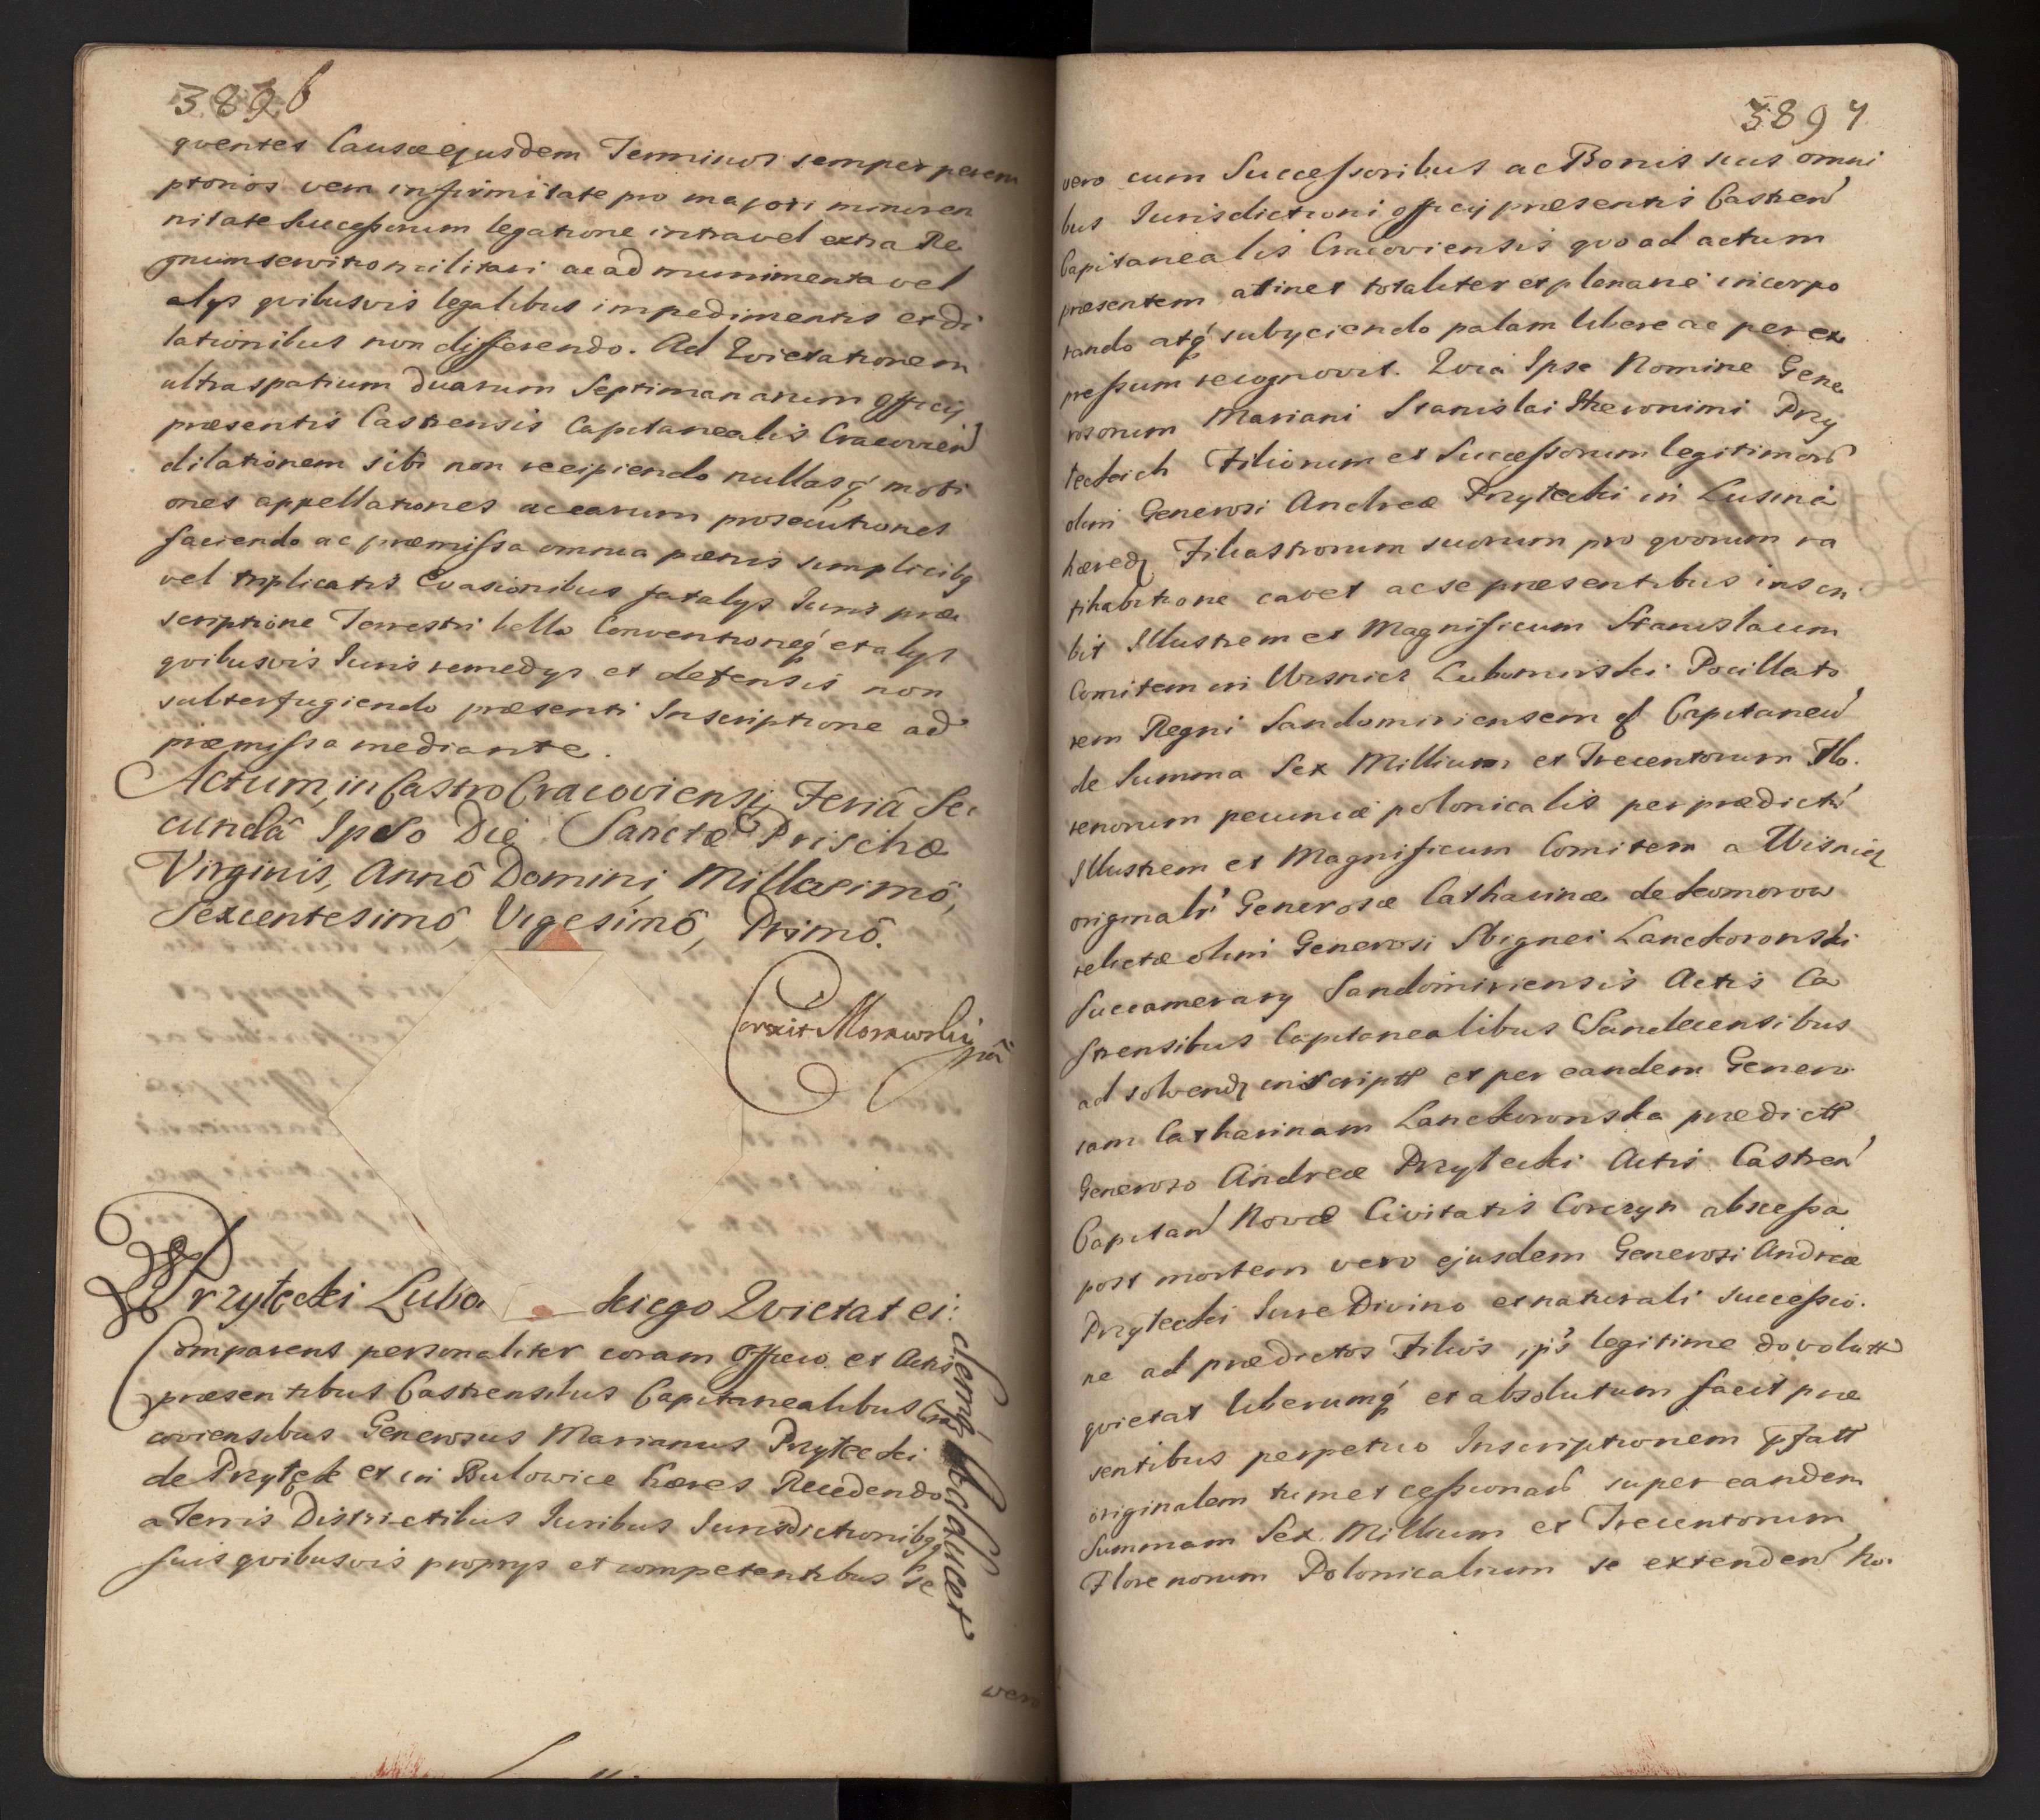 3896
quentes Causae ejusdem Terminos semper perem
ptorios vera infirmitate pro majori minoren
nitate Successorum legatione intra vel extra Re
gnum servitio militari ac ad munimenta vel
alys quibusvis legalibus impedimentis et di
lationibus non differendo. Ad Quietationem
ultra spatium duarum Septimanarum Officij
praesentis Castrensis Capitanealis Cracovien
dilationem sibi non recipiendo nullasq moti
ones appellationes ac earum prosecutiones
faciendo ac praemissa omnia paenis simplicibq
vel triplicatis Evasionibus fatalys Iuris prae
scriptione Terrestri bello Conventioneq et alys
quibusvis Iuris remedys et defensis non
subterfugiendo praesenti Inscriptione ad
praemissa mediante.
Actum, in Castro Cracoviensi, Feriâ Se
cundâ Ipso Die Sanctae Prischae
Virginis, Annô Domini, Millesimô,
Sexcentesimô, Vigesimô, Primô.
Correxit Morawski
Przytecki Lubo kiego Quietat ei:
demq abrenunciat
Comparens personaliter coram Officio et Actis
praesentibus Castrensibus Capitanealibus Cra
coviensibus Generosus Marianus Przytecki
de Przytek et in Bulowice haeres Recedendo
a Terris Districtibus Iuribus Iurisdictionibq
suis quibusvis proprys et competentibus se
vero
3897
vero cum Successoribus ac Bonis suis omni
bus Iurisdictioni officij praesentis Castren
Capitanealis Cracoviensis quo ad actum
praesentem atinet totaliter et plenariè incorpo
rando atq subyciendo palam libere ac per ex
pressum recognovit. Quia Ipse Nomine Gene
rosorum Mariani Stanislai Hieronimi Przy
teckich Filiorum et Successorum legitimor
olim Generosi Andreae Przytecki in Lusina
haered Filiastrorum suorum pro quorum ra
tihabitione cavet ac se praesentibus inscri
bit Illustrem et Magnificum Stanislaum
Comitem in Wisnicz Lubomirski Pocillato
rem Regni Sandomiriensem Capitaneu
de Summa Sex Millium et Trecentorum Flo.
renorum pecuniae polonicalis per praedict
Illustrem et Magnificum Comitem a Wisnicz
originalr Generosae Catharinae de Komorow
relictae olim Generosi Sbignei Lanckoronski
Succamerary Sandomiriensis Actis Ca
strensibus Capitanealibus Sandecensibus
ad solvend inscript et per eandem Genero
sam Catharinam Lanckoronska praedict
Generoso Andreae Przytecki Actis Castren
Capitan Novae Civitatis Corczyn abscessa
post mortem vero ejusdem Generosi Andreae
Przytecki Iure Divino et naturali successio.
ne ad praedictos Filios ips legitime dovolutt
quietat liberumq et absolutum facit prae
sentibus perpetuo Inscriptionem
originalem tum et cessionar super eandem
Summam Sex Millium et Trecentorum
Florenorum Polonicalium se extenden No.